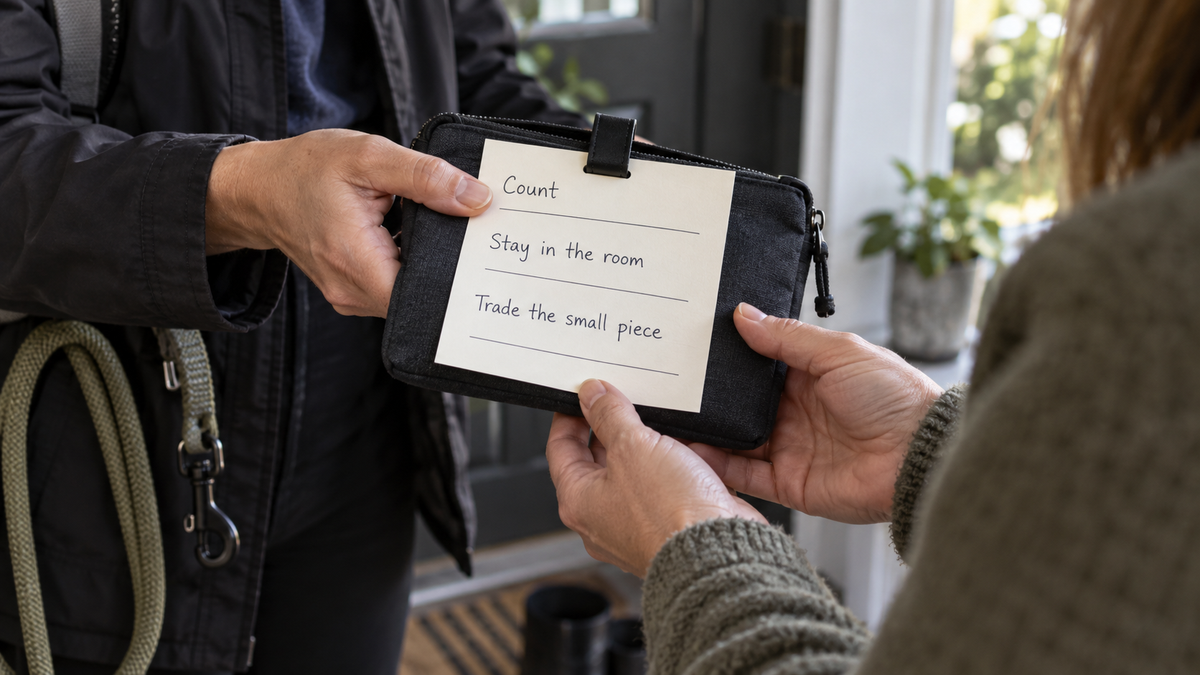 Count
Stay in the room
Trade the small piece